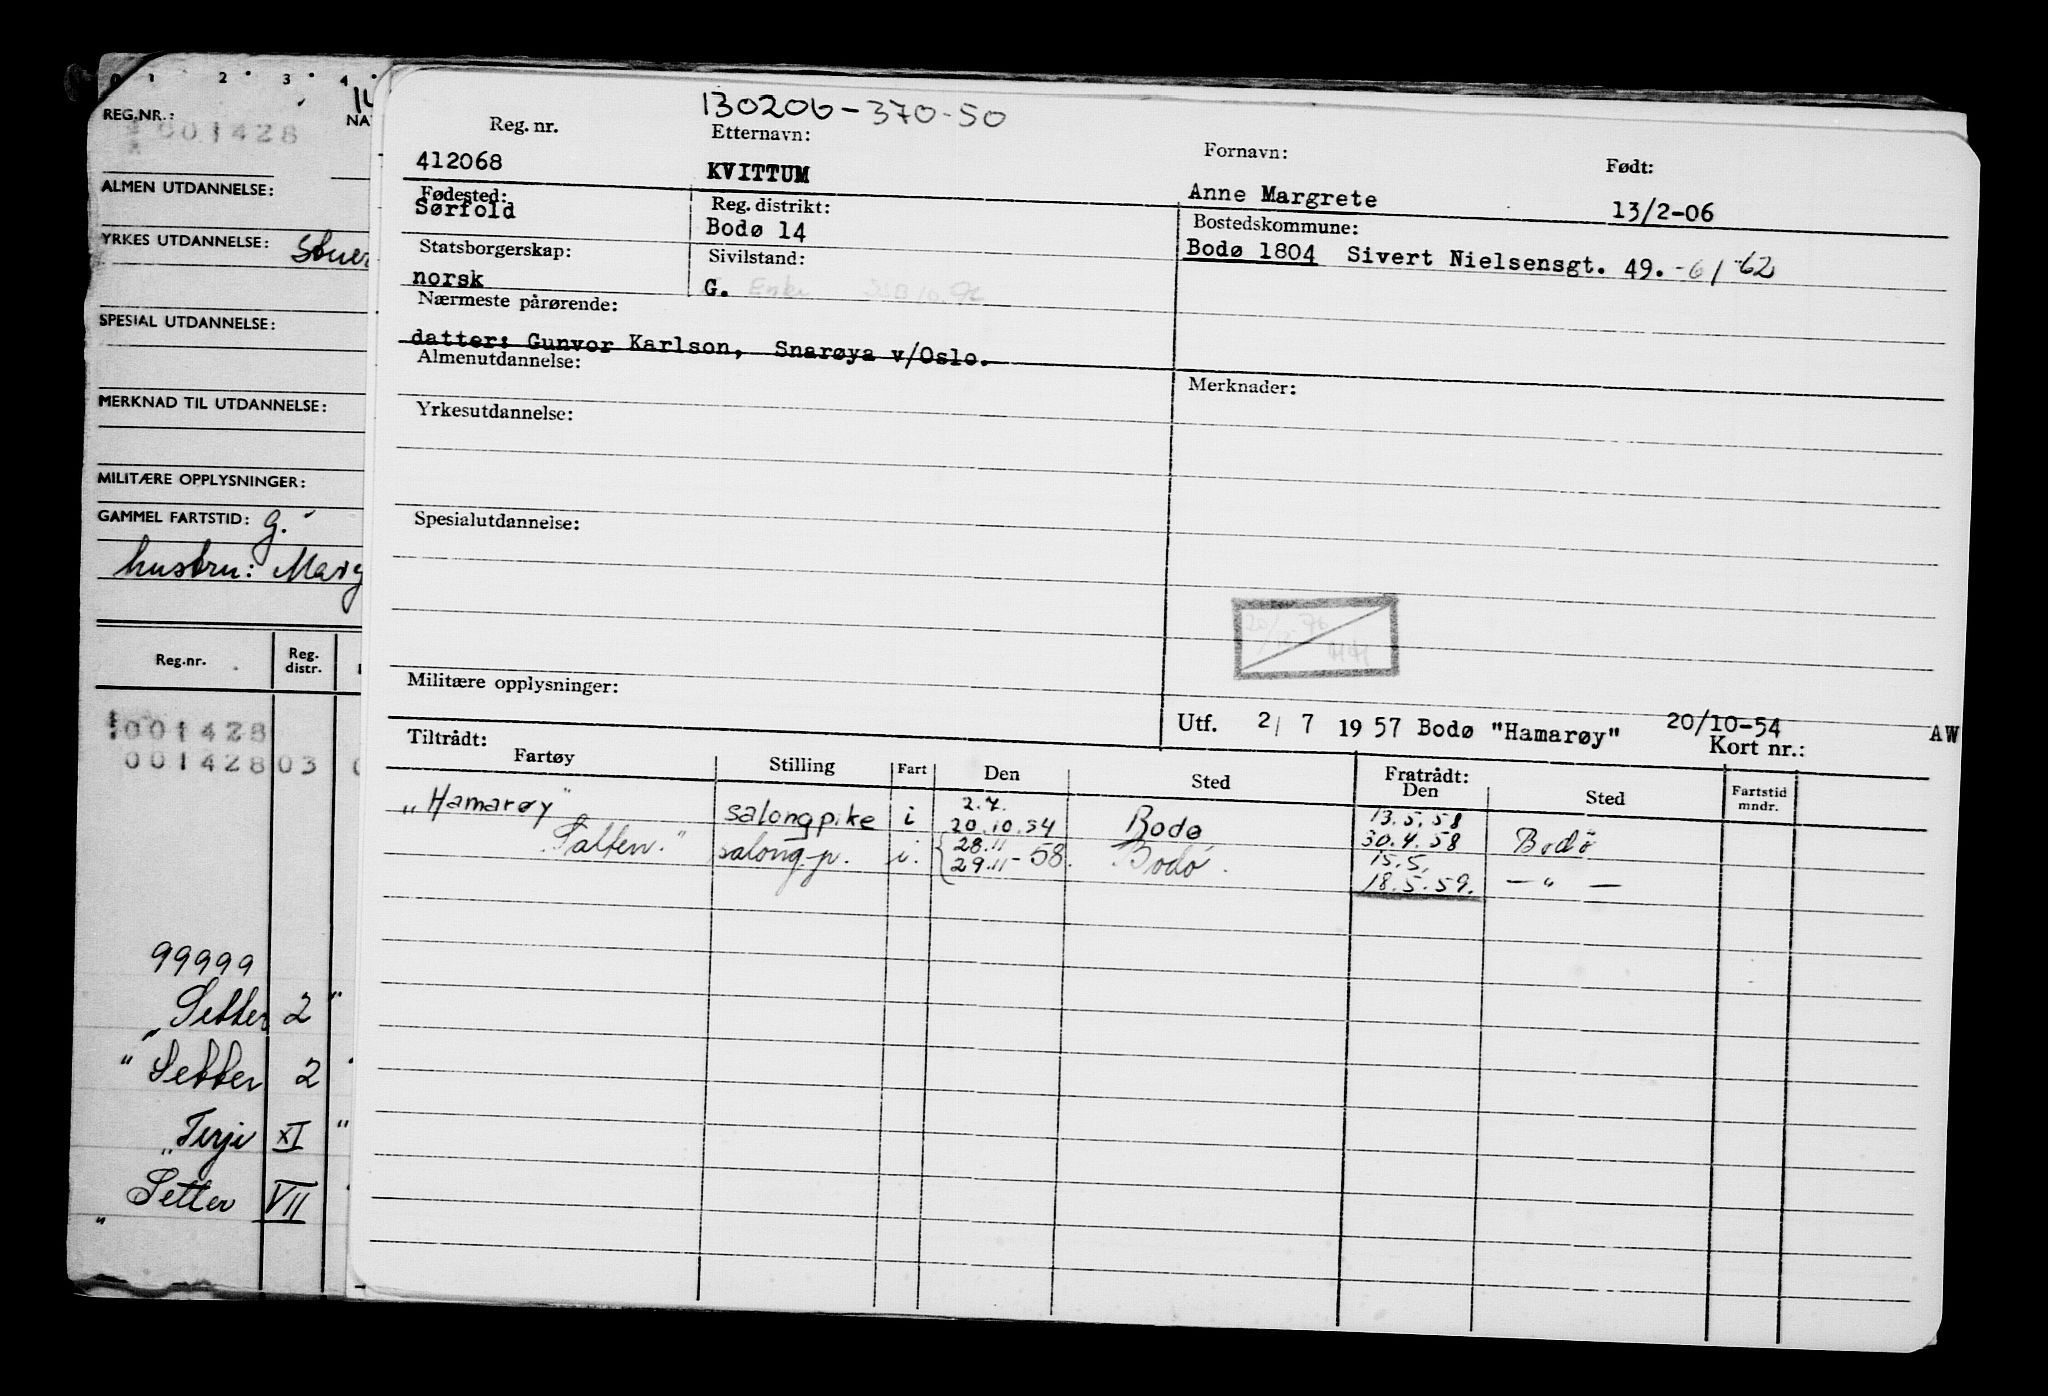 0 1 2 3 4
REG.NR.:
001428
ALMEN UTDANNELSE:
YRKES UTDANNELSE:
SPESIAL UTDANNELSE:
MERKNAD TIL UTDANNELSE:
MILITÆRE OPPLYSNINGER:
GAMMEL FARTSTID: g.
hustru: Marg
Reg.nr. Reg. distr.
001428
001428 03
99999
Setter 2 "
" Setter 2
"Terje XI "
Setter VII
130206-370-50
Reg. nr. Etternavn: Fornavn: Født:
412068 KVITTUM Anne Margrete 13/2-06
Fødested: Reg. distrikt: Bostedskommune:
Sørfold Bodø 14 Bodø 1804 Sivert Nielsensgt. 49. -61 -62
Statsborgerskap: Sivilstand:
norsk G. Enke
Nærmeste pårørende:
datter: Gunvor Karlson, Snarøya v/Oslo.
Almenutdannelse: Merknader:
Yrkesutdannelse:
Spesialutdannelse:
Militære opplysninger:
Utf. 2/ 7 1957 Bodø "Hamarøy" 20/10-54 AW
Kort nr.:
Tiltrådt: Fratrådt:
Fartøy Stilling Fart Den Sted Den Sted Fartstid mndr.
"Hamarøy" salongpike i 2.7. 20.10.54 Bodø 13.5.58 30.4.58 Bodø
Salten." salong-p. i. 28.11 29.11-58. Bodø. 15.5. 18.5.59. — " —